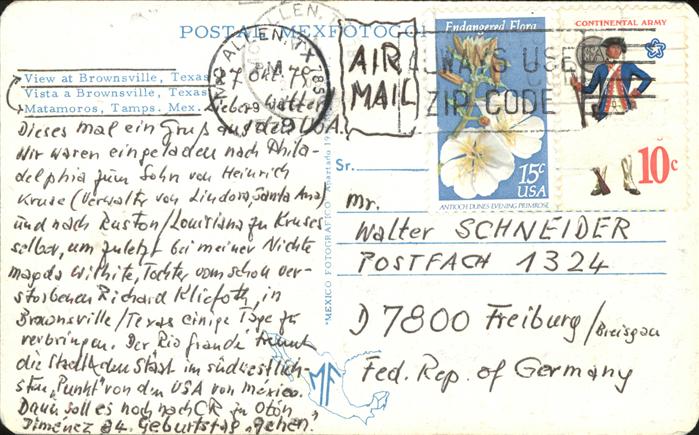 POSTAL MEXFOTOCOLOR
View at Brownsville, Texas
Vista a Brownsville, Texas
Matamoros, Tamps. Mex.
27. Okt. 79
Lieber Walter!
Dieses mal ein Gruß aus den USA.
Wir waren eingeladen nach Phila-
delphia zum Sohn von Heinrich
Kruse (Verwalter von Lindora, Santa Ana)
und nach Ruston/Louisiana zu Kruses
selber, um zuletzt bei meiner Nichte
Magda Wilhite, Tochter vom schon ver-
storbenen Richard Kliefoth, in
Brownsville/Texas einige Tage zu
verbringen. Der Rio Grande trennt
die Stadt den Staat im südwestlich-
sten "Punkt" von den USA von México.
Dann soll es noch nach CR zu Otón
Jiménez 84. Geburtstag "gehen".
McALLEN, TX
PM
1979
AIR
MAIL
ALWAYS USE
ZIP CODE
Endangered Flora
15c
USA
ANTIOCH DUNES EVENING PRIMROSE
CONTINENTAL ARMY
USA
10c
Sr.
Mr.
Walter SCHNEIDER
POSTFACH 1324
D 7800 Freiburg/Breisgau
Fed. Rep. of Germany
"MEXICO FOTOGRAFICO" Apartado
MF